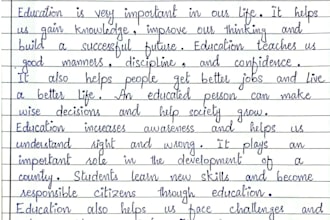 Education is very important in our life. It helps
us gain knowledge, improve our thinking and
build a successful future. Education teaches us
good manners, discipline, and confidence.
It also helps people get better jobs and live
a better life. An educated person can make
wise decisions and help society grow.
Education increases awareness and helps us
understand right and wrong. It plays an
important role in the development of a
county. Students learn new skills and become
responsible citizens through education.
Education also helps us face challenges and